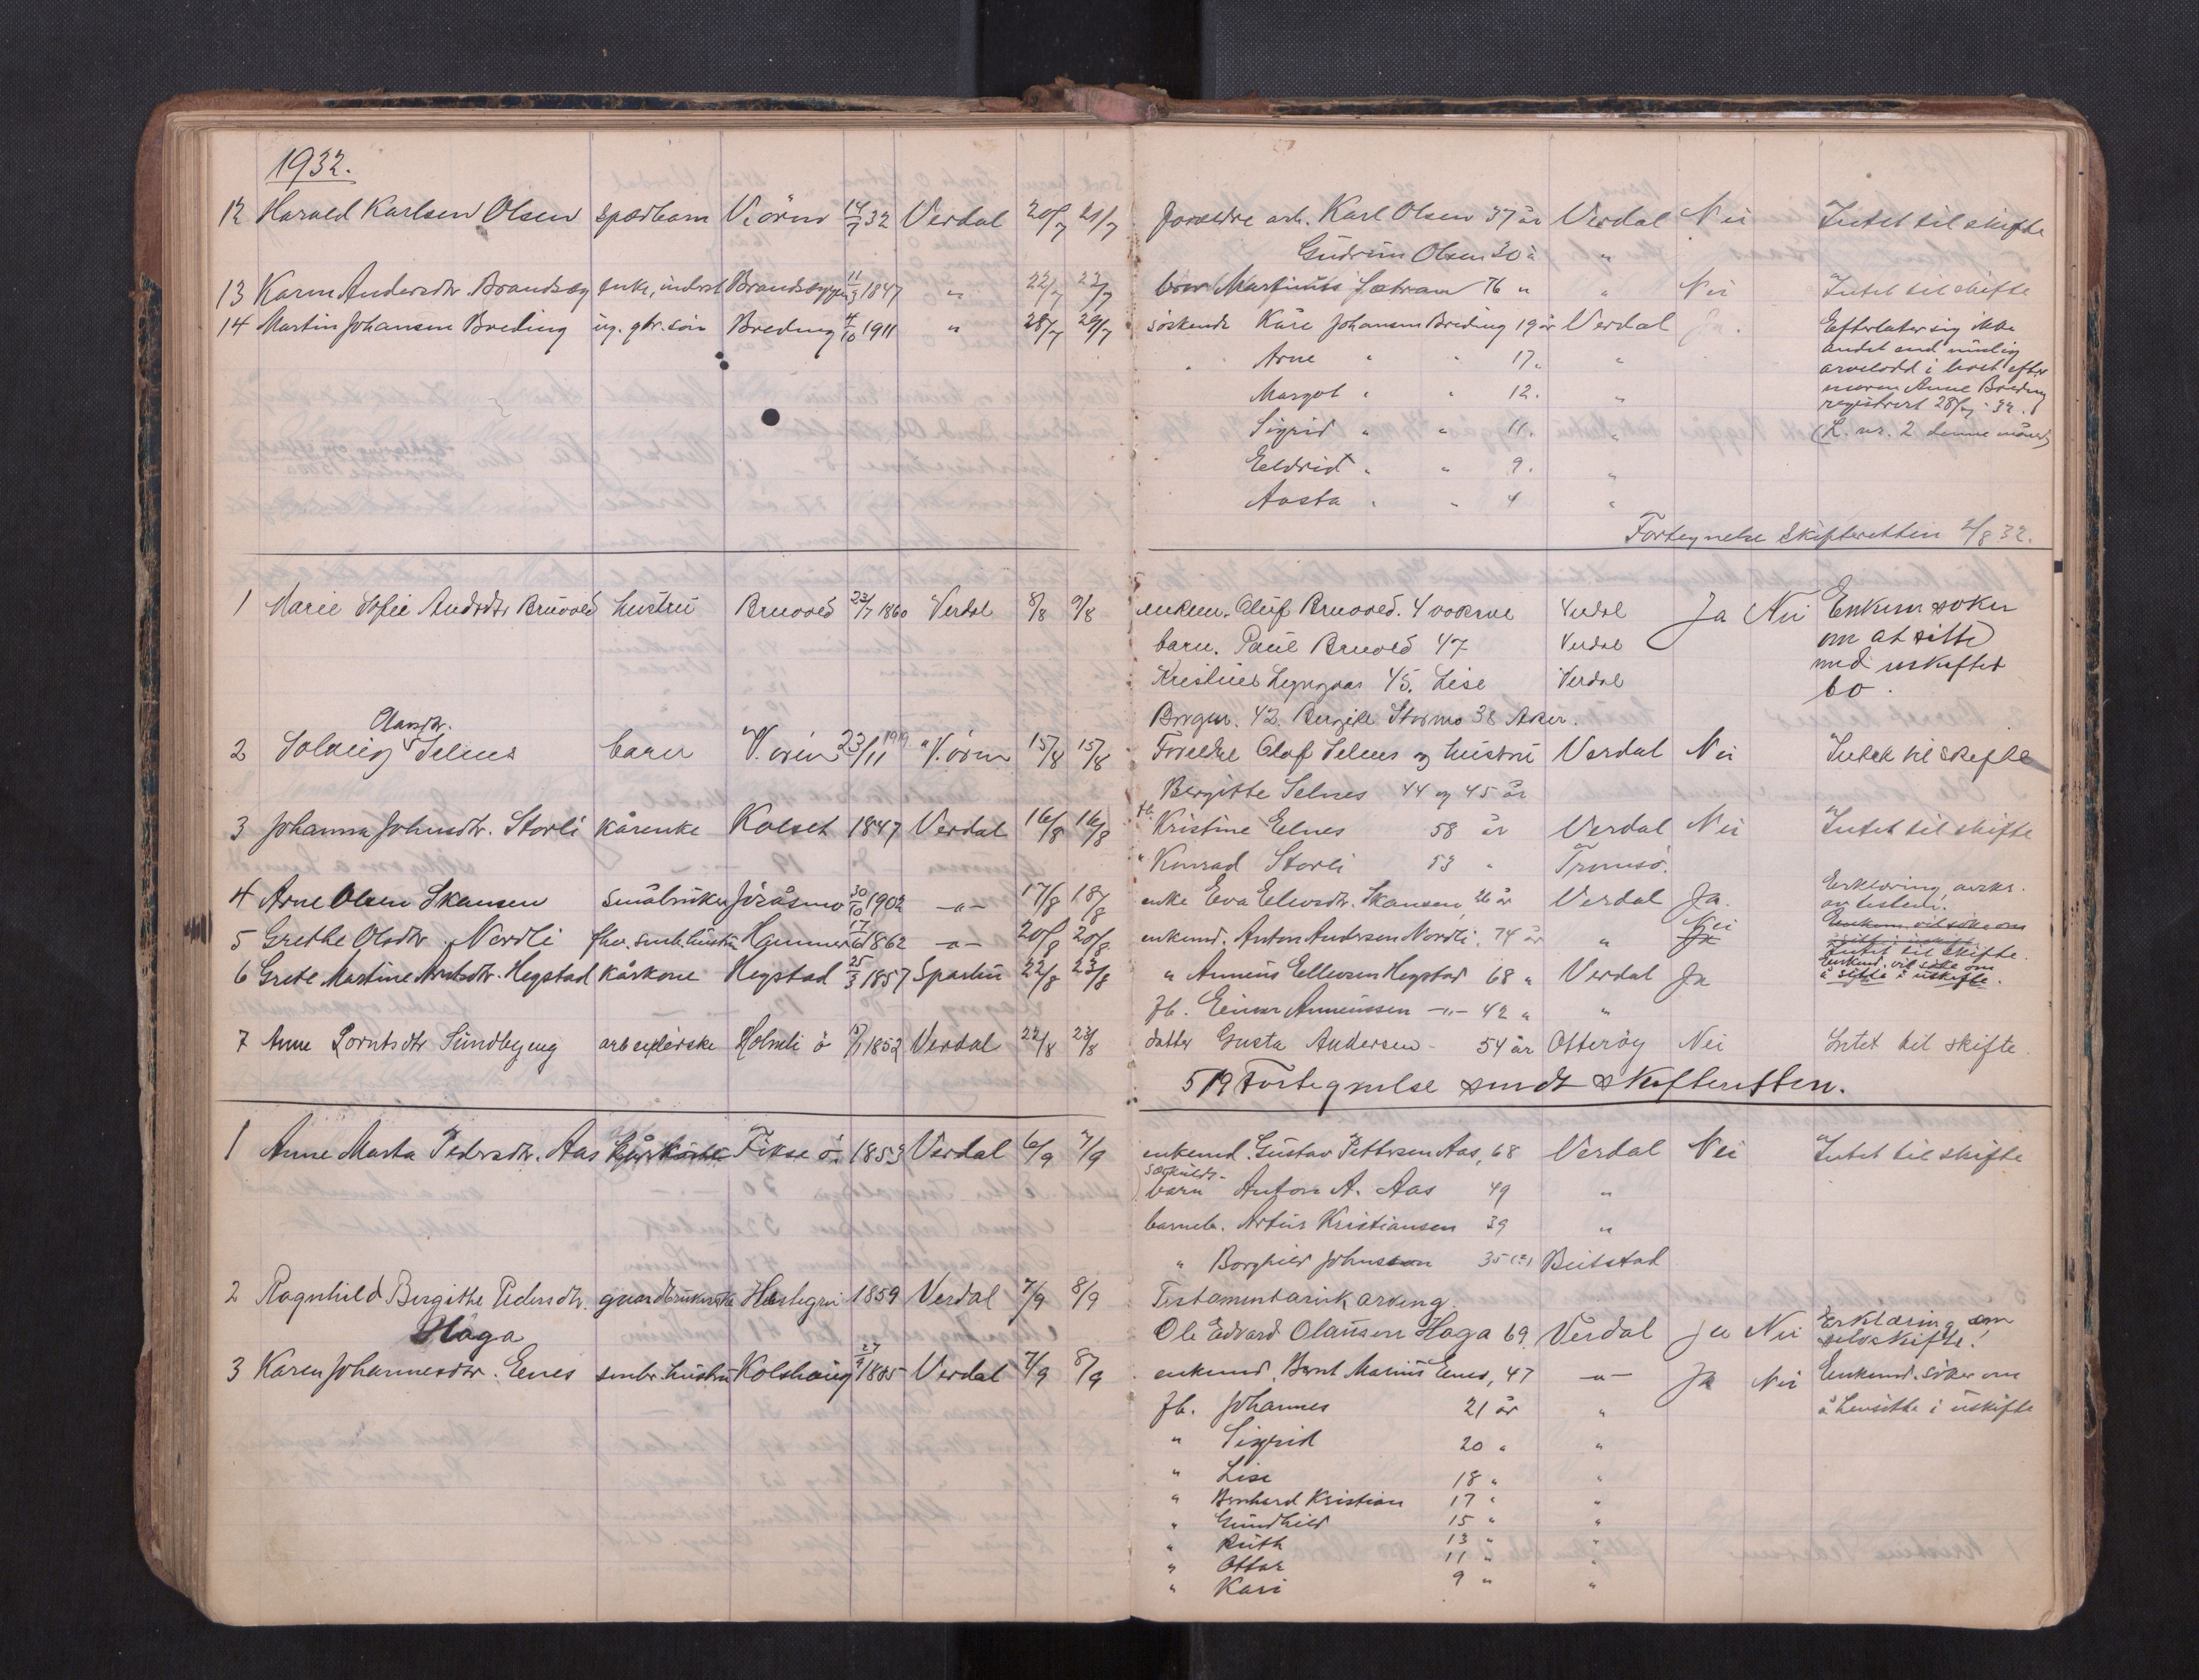 1932.
12 Harald Karlsen Olsen spedbarn V.øren 14/7 32 Verdal 20/7 21/7 foreldre arb. Karl Olsen 37 år Verdal Nei Intet til skifte
Gudrun Olsen 30 " "
13 Karen Andersdtr. Brandsæg enke, inderst Brandsæggen 11/3 1847 " 22/7 22/7 bror Martinus Sætran 76 " " Nei Intet til skifte
14 Martin Johansen Breding ug. gbr. søn Breding 4/10 1911 " 28/7 29/7 søskende Kåre Johansen Breding 19 år Verdal Ja. Efterlater sig ikke
Arne " " 17 " " andet end mulig
arvelodd i boet efter
Margot " " 12 " " moren Anne Breding
registrert 28/7 - 32.
Sigrid " " 11 " " (L. nr. 2 denne måned)
Eldrid " " 9 " "
Aasta " " 4 "
Fortegnelse Skifteretten 2/8 32.
1 Marie Sofie Andrsdtr Bruvold hustru Bruvold 23/7 1860 Verdal 8/8 9/8 enkem. Oluf Bruvold. 4 voksne Verdal Ja Nei Enkem søker
barn. Paul Bruvold 47 Verdal om at sitte
Kristine Lyngaas 45. Lise Verdal med uskiftet
bo.
Borgen. 42. Bergite Stormo 38 Aker.
Olausdtr.
2 Solveig Selnes barn V.øren 23/11 1919 V.øren 15/8 15/8 Foreldre Olaf Selnes og hustru Verdal Nei Intet til skifte
Bergitte Selnes 44 og 45 år
3 Johanna Johnsdtr. Storli kårenke Kolset 1847 Verdal 16/8 16/8 fb. Kristine Elnes 58 år Verdal Nei Intet til skifte
" Konrad Storli 53 " Tromsø.
4 Arne Olsen Skansen småbruker Jøråsmo 30/10 1902 -"- 17/8 18/8 enke Eva Eliasdtr. Skansen, 26 år Verdal Ja. Erklæring avskr.
av testem.
5 Grethe Olsdtr. Nordli fhv. smb. hustru Hammer 17/6 1862 -"- 20/8 20/8 enkemd. Anton Andersen Nordli, 74 år " Nei Ja Enkem vil søke om
Intet til skifte.
6 Grete Martine Arntsdtr. Hegstad kårkone Hegstad 25/3 1857 Sparbu 22/8 23/8 " Anneus Ellevsen Hegstad 68 " Verdal Ja Enkemd. vil søke om
å sidde i uskifte.
fb. Einar Anneussen -"- 42 " "
7 Anne Lorntsdtr Sundbyeng arbeiderske Holmli ø 1852 Verdal 22/8 23/8 datter Gusta Andersen 54 år Otterøy Nei Intet til skifte.
5/9 Fortegnelse sendt skifteretten.
1 Anne Marta Pedersdtr. Aas Fikse ø. 1853 Verdal 6/9 7/9 enkemd. Gustav Pettersen Aas, 68 Verdal Nei Intet til skifte
særkulds-
barn Anton A. Aas 49 "
barneb. Artur Kristiansen 39 "
" Borghild Johnsson 35 (?) Beitstad
2 Ragnhild Bergithe Pedersdtr. gaardbrukerske Hestegrei 1859 Verdal 7/9 8/9 Testamentarisk arving.
Haga Ole Edvard Olausen Haga 69. Verdal Ja Nei Erklæring om
selvskifte!
3 Karen Johannesdtr. Eenes smbr. hustru Kolshaug 27/9 1885 Verdal 7/9 8/9 enkemd. Bernt Marius Eenes, 47 -"- Ja Nei Enkemd. søker om
fb. Johannes 21 år " å hensitte i uskifte
" Sigrid 20 " "
" Lise 18 " "
" Bernhard Kristian 17 " "
" Gundhild 15 " "
" Ruth 13 " "
" Ottar 11 " "
" Kari 9 " "